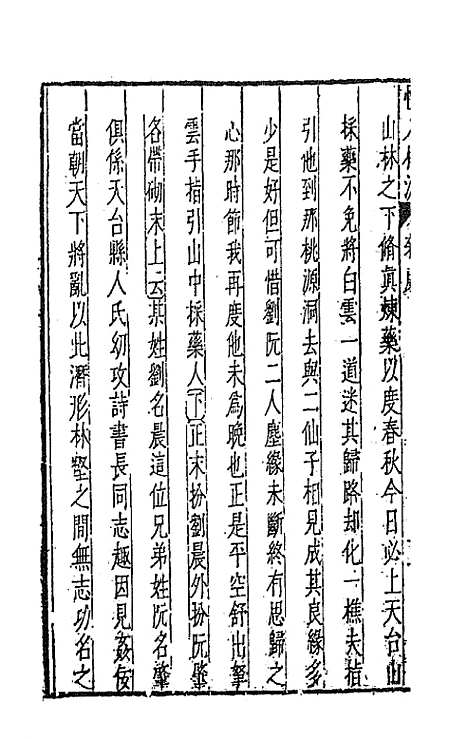 山林之下脩眞煉藥以度春秋今日必上天台山
採藥不免將白雲一道迷其歸路却化一樵夫指
引他到那桃源洞去與二仙子相見成其良緣多
少是好但可惜劉阮二人塵緣未斷終有思歸之
心那時節我再度他未爲晚也正是平空舒出拏
雲手指引山中採藥人下正末扮劉晨外扮阮肇
各帶砌末上云某姓劉名晨這位兄弟姓阮名肇
俱係天台縣人氏幼攻詩書長同志趣因見奸佞
當朝天下將亂以此潛形林壑之間無志功名之